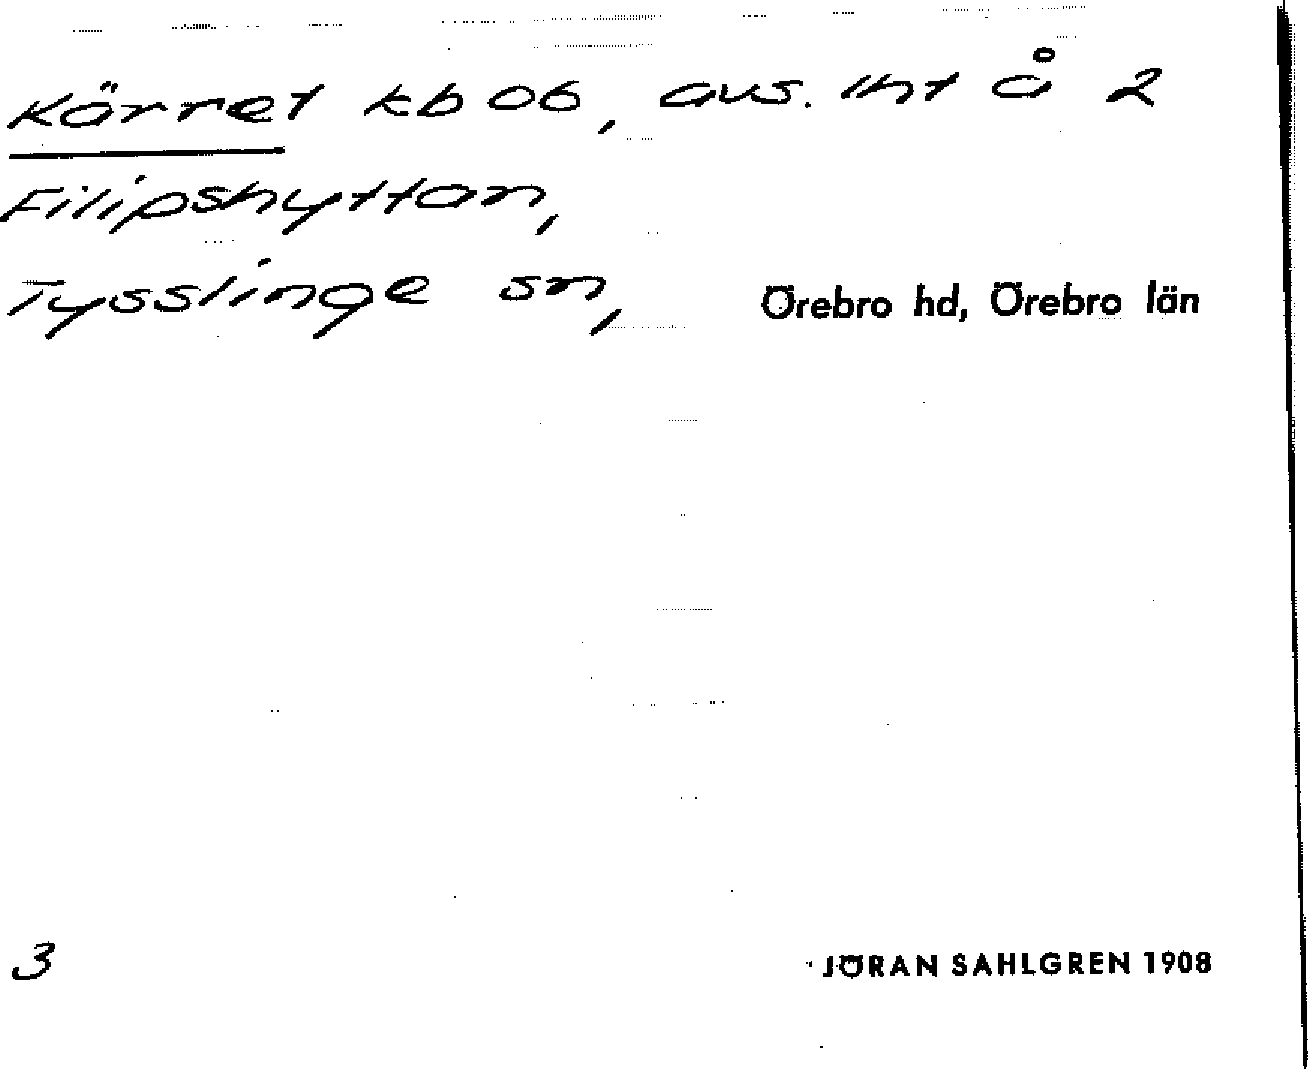 Kärret kb 06, avs. lht å 2
Filipshyttan,
Tysslinge sn, Örebro hd, Örebro län
3 JÖRAN SAHLGREN 1908